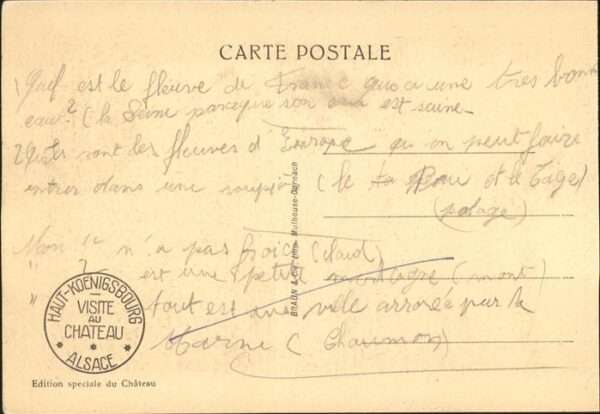 CARTE POSTALE
1 Quel est le fleuve de France qui a une très bonne
eau? (la Seine parceque son eau est saine
2 Quels sont les fleuves d'Europe qu'on peut faire
entrer dans une soupe (le Pô et le Tage)
(potage)
Mon 1er n'a pas froid (chaud)
" 2 est une petite montagne (mont)
" tout est une ville arrosée par la
Marne (Chaumon)
BRAUN & Cie Mulhouse-Dornach
HAUT-KOENIGSBOURG
VISITE
AU
CHATEAU
ALSACE
Edition speciale du Château